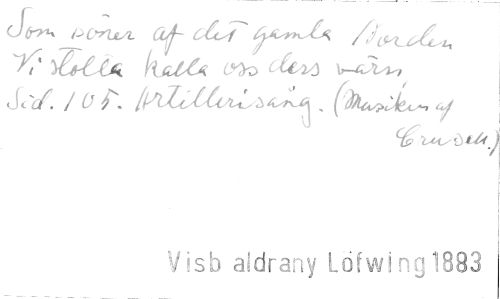 Som söner af det gamla Norden
Vi stolta kalla oss ders värn,
Sid. 105. Artillerisång. (Musiken af
Crusell.)
Visb aldrany Löfwing 1883